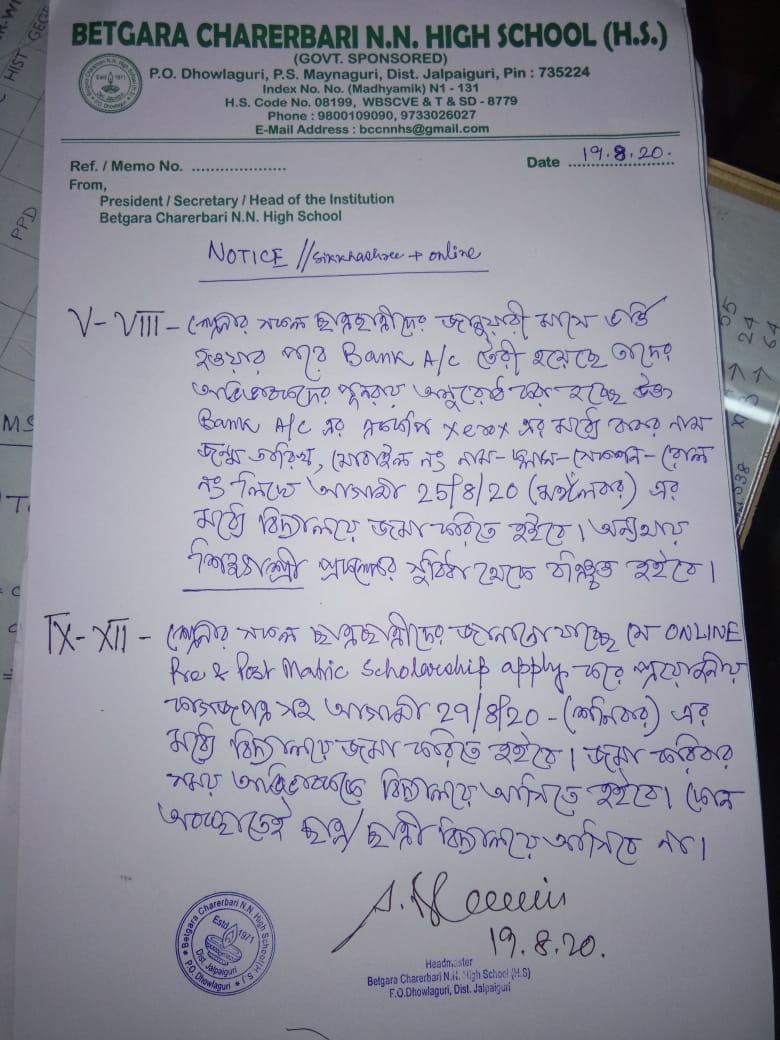 BETGARA CHARERBARI N.N. HIGH SCHOOL (H.S.)
(GOVT. SPONSORED)
P.O. Dhowlaguri, P.S. Maynaguri, Dist. Jalpaiguri, Pin : 735224
Index No. No. (Madhyamik) N1 - 131
H.S. Code No. 08199, WBSCVE & T & SD - 8779
Phone : 9800109090, 9733026027
E-Mail Address : bccnnhs@gmail.com
Ref. / Memo No. ..................... Date 19.8.20.
From,
President / Secretary / Head of the Institution
Betgara Charerbari N.N. High School
NOTICE // Sikkhashree + online
V - VIII - শ্রেণীর সকল ছাত্রছাত্রীদের জানুয়ারী মাসে ভর্তি
হওয়ার পরে Bank A/c তৈরী হয়েছে তাদের
অভিভাবকদের পুনরায় অনুরোধ করা হচ্ছে উক্ত
Bank A/c এর xerox এর মধ্যে বাবার নাম
জন্ম তারিখ, মোবাইল নং নাম - ক্লাস - সেকশন - রোল
নং লিখে আগামী 25/8/20 (মঙ্গলবার) এর
মধ্যে বিদ্যালয়ে জমা করিতে হইবে। অন্যথায়
শিক্ষাশ্রী প্রকল্পের সুবিধা থেকে বঞ্চিত হইবে।
IX - XII - শ্রেণীর সকল ছাত্রছাত্রীদের জানানো যাচ্ছে যে ONLINE
Pre & Post Matric Scholarship apply করে প্রয়োজনীয়
কাগজপত্র সহ আগামী 29/8/20 - (শনিবার) এর
মধ্যে বিদ্যালয়ে জমা করিতে হইবে। জমা করিবার
সময় অভিভাবককে বিদ্যালয়ে আসিতে হইবে। কোন
অবস্থাতেই ছাত্র/ছাত্রী বিদ্যালয়ে আসিবে না।
19.8.20.
Headmaster
Betgara Charerbari N.N. High School (H.S)
P.O.Dhowlaguri, Dist. Jalpaiguri
Betgara Charerbari N.N. High School (H.S.)
Estd 1971
Dist. Jalpaiguri
P.O. Dhowlaguri